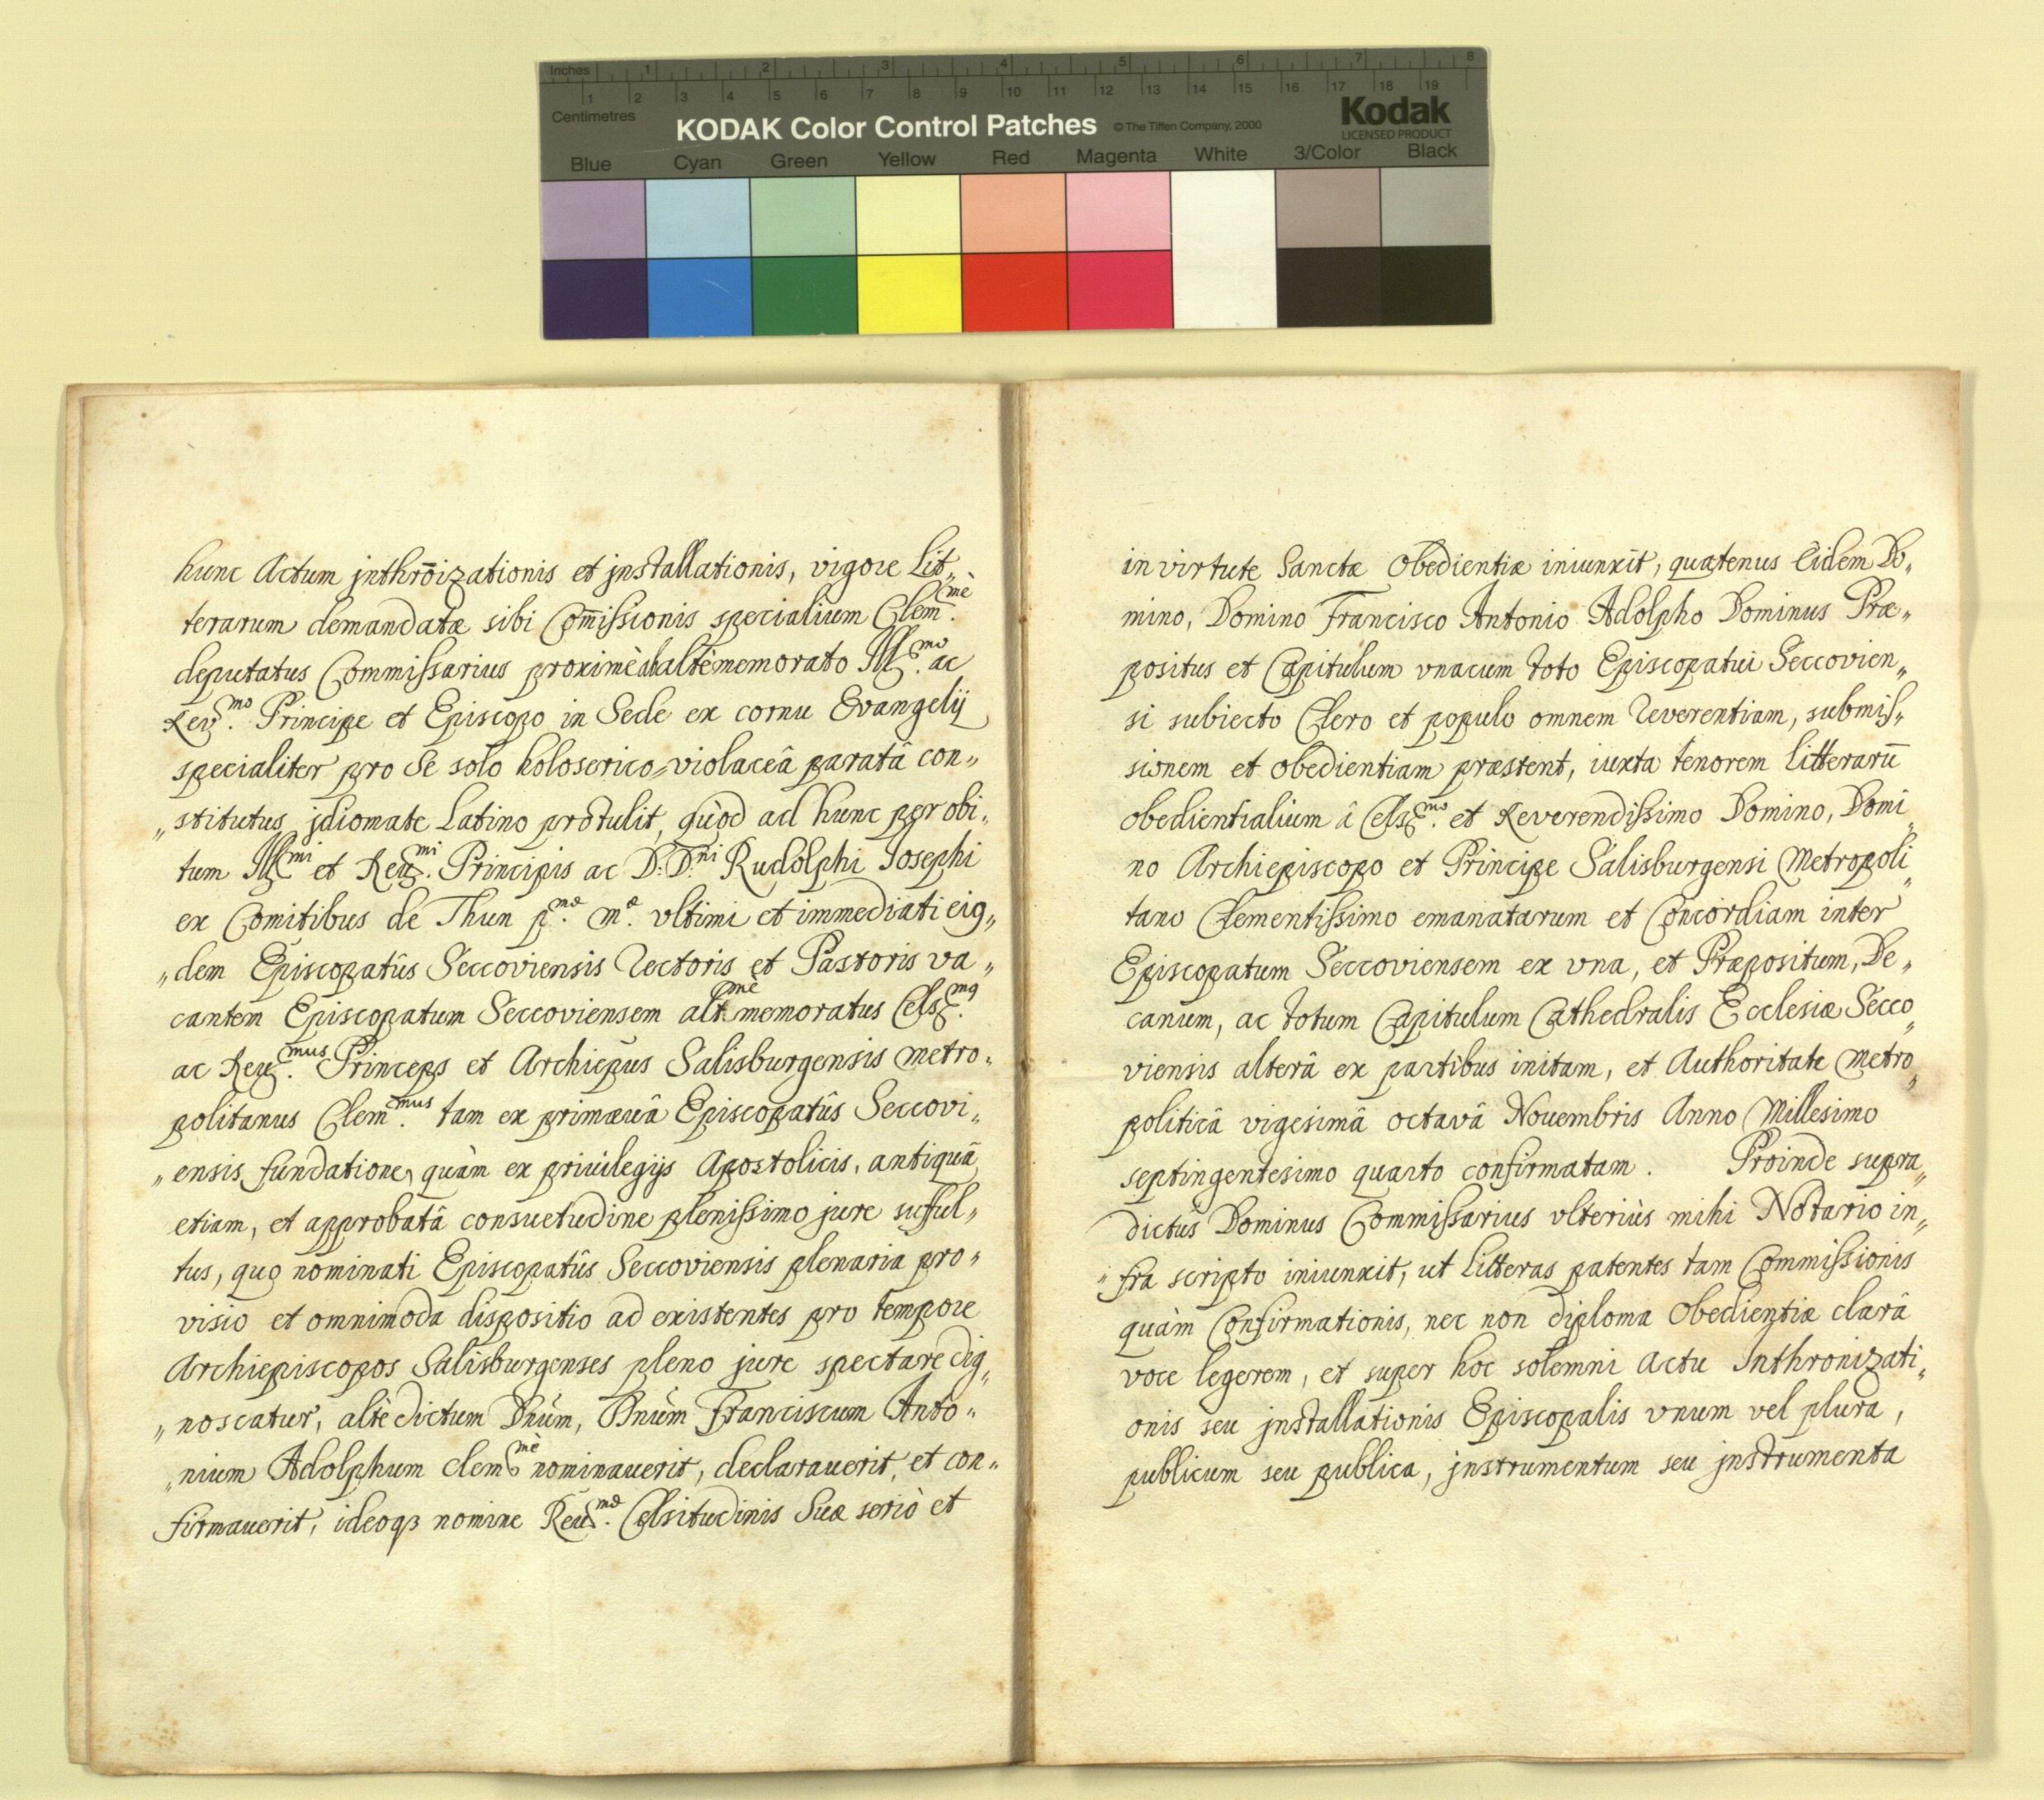 Inches 1 2 3 4 5 6 7 8
1 2 3 4 5 6 7 8 9 10 11 12 13 14 15 16 17 18 19
Centimetres
KODAK Color Control Patches © The Tiffen Company, 2000
Kodak
LICENSED PRODUCT
Blue Cyan Green Yellow Red Magenta White 3/Color Black
hunc Actum jnthrōizationis et jnstallationis, vigore Lit„
terarum demandatæ sibi Com̄issionis specialium Clem.mè
deputatus Commissarius proximè altèmemorato Ill.mo ac
Rev.mo Principe et Episcopo in Sede ex cornu Evangelij
specialiter pro Se solo holoserico=violaceâ paratâ con„
„stitutus jdiomate Latino protulit, quòd ad hunc per obi„
tum Ill.mi et Reu.mi Principis ac D: D.ni Rudolphi Josephi
ex Comitibus de Thun p.mæ m.æ vltimi et immediati eig„
„dem Episcopatûs Seccoviensis Rectoris et Pastoris va„
cantem Episcopatum Seccoviensem alt.mè memoratus Cels.mg
ac Reu.mus Princeps et Archiepus Salisburgensis metro„
politanus Clem.mus tam ex primæuâ Episcopatûs Seccovi„
„ensis fundatione, quàm ex priuilegijs Apostolicis, antiquâ
etiam, et approbatâ consuetudine plenissimo jure suffulm„
tus, quo nominati Episcopatûs Seccoviensis plenaria pro„
visio et omnimoda dispositio ad existentes pro tempore
Archiepiscopos Salisburgenses pleno jure spectare dig„
„noscatur, altèdictum Dnùm, Dnùm Franciscum Anto„
„nium Adolphum clem.mè nominauerit, declarauerit, et con„
firmauerit, ideoqȝ nomine Reu.mæ Celsitudinis Suæ seriò et
in virtute Sanctæ Obedientiæ iniunxit, quatenus Eidem Do„
mino, Domino Francisco Antonio Adolpho Dominus Præ„
positus et Capitulum vnacum toto Episcopatui Seccovien„
si subiecto Clero et populo omnem reverentiam, submis„
sionem et obedientiam præstent, iuxta tenorem Litterarū
obedientialium â Cels.mo et Reverendissimo Domino, Domi„
no Archiepiscopo et Principe Salisburgensi Metropoli„
tano Clementissimo emanatarum et Concordiam inter
Episcopatum Seccoviensem ex vna, et Præpositum, De„
canum, ac totum Capitulum Cathedralis Ecclesiæ Secco„
viensis alterâ ex partibus initam, et Authoritate Metro„
politicâ vigesimâ octavâ Nouembris Anno Millesimo
septingentesimo quarto confirmatam. Proinde supra„
dictus Dominus Commissarius vlteriùs mihi Notario in„
„fra scripto iniunxit, ut Litteras patentes tam Commissionis
quàm Confirmationis, nec non diploma Obedientiæ clarâ
voce legerem, et super hoc solemni Actu Inthronizati„
onis seu jnstallationis Episcopalis vnum vel plura,
publicum seu publica, jnstrumentum seu jnstrumenta